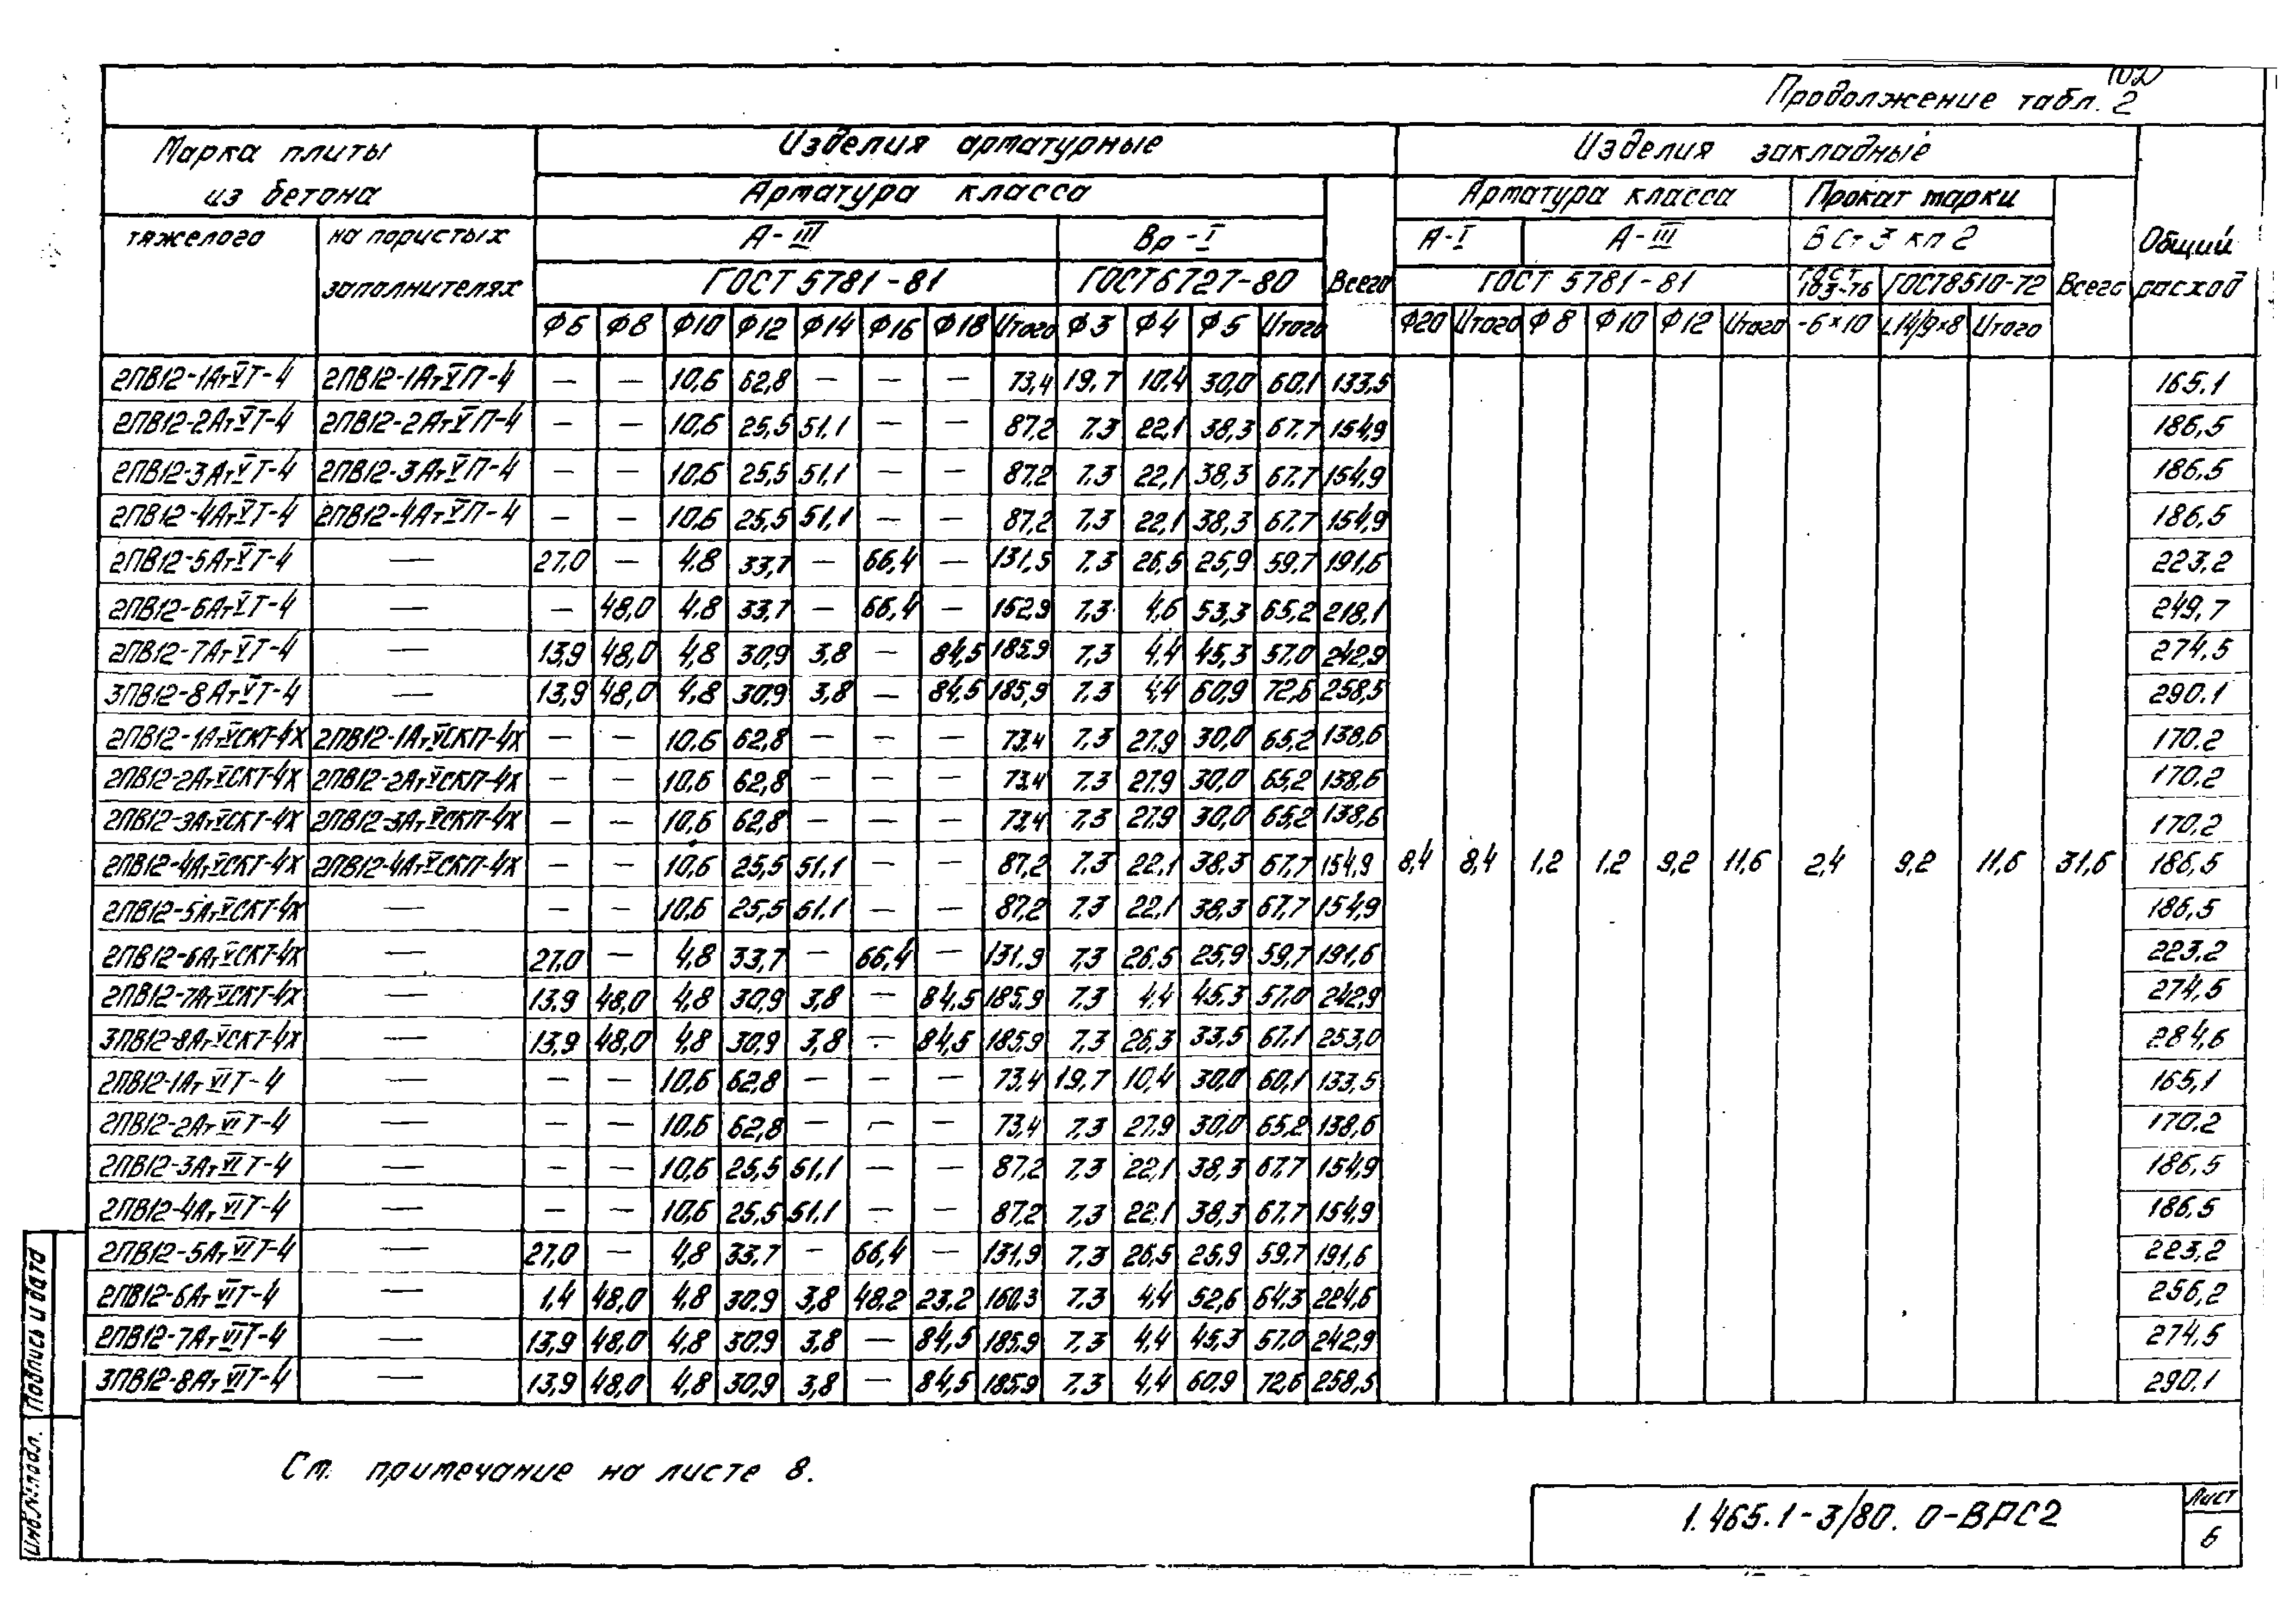 Продолжение табл. 2
Марка плиты из бетона
Изделия арматурные
Изделия закладные
Общий расход
Арматура класса
Всего
Арматура класса
Прокат марки
Всего
тяжелого
на пористых заполнителях
А-III
Вр-I
А-I
А-III
В Ст 3 кп 2
ГОСТ 5781-81
ГОСТ 6727-80
ГОСТ 5781-81
ГОСТ 103-76
ГОСТ 8510-72
Ф6 Ф8 Ф10 Ф12 Ф14 Ф16 Ф18 Итого Ф3 Ф4 Ф5 Итого Ф20 Итого Ф8 Ф10 Ф12 Итого -6×10 L14/9×8 Итого
2ПВ12-1АтVТ-4 2ПВ12-1АтVП-4 — — 10,6 62,8 — — — 73,4 19,7 10,4 30,0 60,1 133,5 165.1
2ПВ12-2АтVТ-4 2ПВ12-2АтVП-4 — — 10,6 25,5 51,1 — — 87,2 7,3 22,1 38,3 67,7 154,9 186,5
2ПВ12-3АтVТ-4 2ПВ12-3АтVП-4 — — 10,6 25,5 51,1 — — 87,2 7,3 22,1 38,3 67,7 154,9 186,5
2ПВ12-4АтVТ-4 2ПВ12-4АтVП-4 — — 10,6 25,5 51,1 — — 87,2 7,3 22,1 38,3 67,7 154,9 186,5
2ПВ12-5АтVТ-4 — 27,0 — 4,8 33,7 — 66,4 — 131,5 7,3 26,5 25,9 59,7 191,6 223,2
2ПВ12-6АтVТ-4 — — 48,0 4,8 33,7 — 66,4 — 152,9 7,3 4,6 53,3 65,2 218,1 249,7
2ПВ12-7АтVТ-4 — 13,9 48,0 4,8 30,9 3,8 — 84,5 185,9 7,3 4,4 45,3 57,0 242,9 274,5
3ПВ12-8АтVТ-4 — 13,9 48,0 4,8 30,9 3,8 — 84,5 185,9 7,3 4,4 60,9 72,6 258,5 290.1
2ПВ12-1АтVСКТ-4Х 2ПВ12-1АтVСКП-4Х — — 10,6 62,8 — — — 73,4 7,3 27,9 30,0 65,2 138,6 170.2
2ПВ12-2АтVСКТ-4Х 2ПВ12-2АтVСКП-4Х — — 10,6 62,8 — — — 73,4 7,3 27,9 30,0 65,2 138,6 170.2
2ПВ12-3АтVСКТ-4Х 2ПВ12-3АтVСКП-4Х — — 10,6 62,8 — — — 73,4 7,3 27,9 30,0 65,2 138,6 170,2
2ПВ12-4АтVСКТ-4Х 2ПВ12-4АтVСКП-4Х — — 10,6 25,5 51,1 — — 87,2 7,3 22,1 38,3 67,7 154,9 8,4 8,4 1,2 1,2 9,2 11,6 2,4 9,2 11,6 31,6 186,5
2ПВ12-5АтVСКТ-4Х — — — 10,6 25,5 51,1 — — 87,2 7,3 22,1 38,3 67,7 154,9 186,5
2ПВ12-6АтVСКТ-4Х — 27,0 — 4,8 33,7 — 66,4 — 131,9 7,3 26,5 25,9 59,7 191,6 223.2
2ПВ12-7АтVСКТ-4Х — 13,9 48,0 4,8 30,9 3,8 — 84,5 185,9 7,3 4,4 45,3 57,0 242,9 274,5
3ПВ12-8АтVСКТ-4Х — 13,9 48,0 4,8 30,9 3,8 — 84,5 185,9 7,3 26,3 33,5 67,1 253,0 284,6
2ПВ12-1АтVIТ-4 — — — 10,6 62,8 — — — 73,4 19,7 10,4 30,0 60,1 133,5 165,1
2ПВ12-2АтVIТ-4 — — — 10,6 62,8 — — — 73,4 7,3 27,9 30,0 65,2 138,6 170.2
2ПВ12-3АтVIТ-4 — — — 10,6 25,5 51,1 — — 87,2 7,3 22,1 38,3 67,7 154,9 186,5
2ПВ12-4АтVIТ-4 — — — 10,6 25,5 51,1 — — 87,2 7,3 22,1 38,3 67,7 154,9 186,5
2ПВ12-5АтVIТ-4 — 27,0 — 4,8 33,7 — 66,4 — 131,9 7,3 26,5 25,9 59,7 191,6 223,2
2ПВ12-6АтVIТ-4 — 1,4 48,0 4,8 30,9 3,8 48,2 23,2 160,3 7,3 4,4 52,6 64,3 224,6 256,2
2ПВ12-7АтVIТ-4 — 13,9 48,0 4,8 30,9 3,8 — 84,5 185,9 7,3 4,4 45,3 57,0 242,9 274,5
3ПВ12-8АтVIТ-4 — 13,9 48,0 4,8 30,9 3,8 — 84,5 185,9 7,3 4,4 60,9 72,6 258,5 290.1
См. примечание на листе 8.
1.465.1-3/80. 0-ВРС2
Лист
6
Инв.№ подл.
Подпись и дата